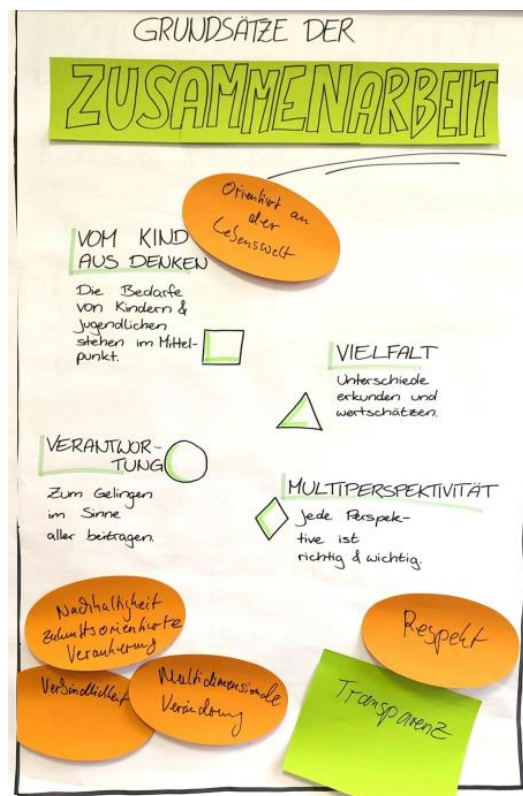 GRUNDSÄTZE DER
ZUSAMMENARBEIT
Orientiert an
der
Lebenswelt
VOM KIND
AUS DENKEN
Die Bedarfe
von Kindern &
Jugendlichen
stehen im Mittel-
punkt.
VIELFALT
Unterschiede
erkunden und
wertschätzen.
VERANTWOR-
TUNG
Zum Gelingen
im Sinne
aller beitragen.
MULTIPERSPEKTIVITÄT
Jede Perspek-
tive ist
richtig & wichtig.
Nachhaltigkeit
zukunftsorientierte
Verankerung
Verbindlichkeit
Multidimensionale
Respekt
Transparenz